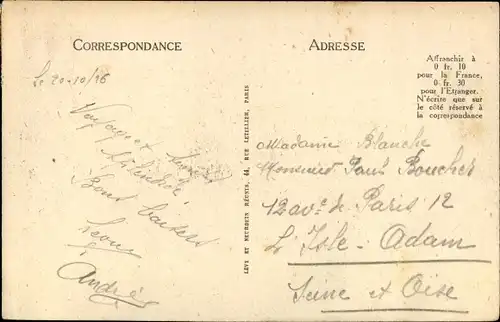 CORRESPONDANCE
ADRESSE
Affranchir à
0 fr. 10
pour la France,
0 fr. 30
pour l'Etranger.
N'écrire que sur
le côté réservé à
la correspondance
Le 20-10/26
Bons baisers
André
LÉVY ET NEURDEIN RÉUNIS, 44, RUE LETELLIER, PARIS
Madame Blanche
Monsieur Paul Boucher
12 avᵉ de Paris 12
L'Isle-Adam
Seine et Oise